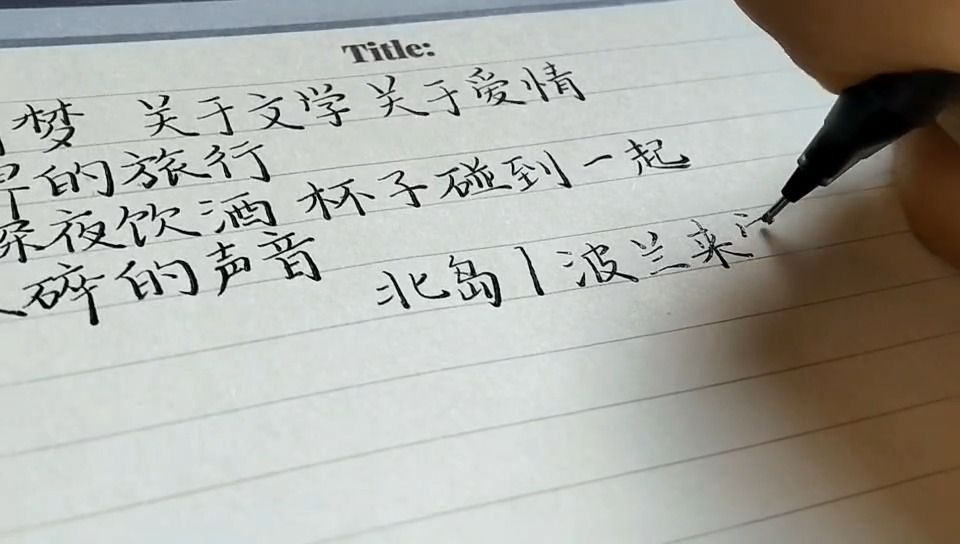 Title:
梦 关于文学 关于爱情
的旅行
深夜饮酒 杯子碰到一起
碎的声音 北岛|波兰来